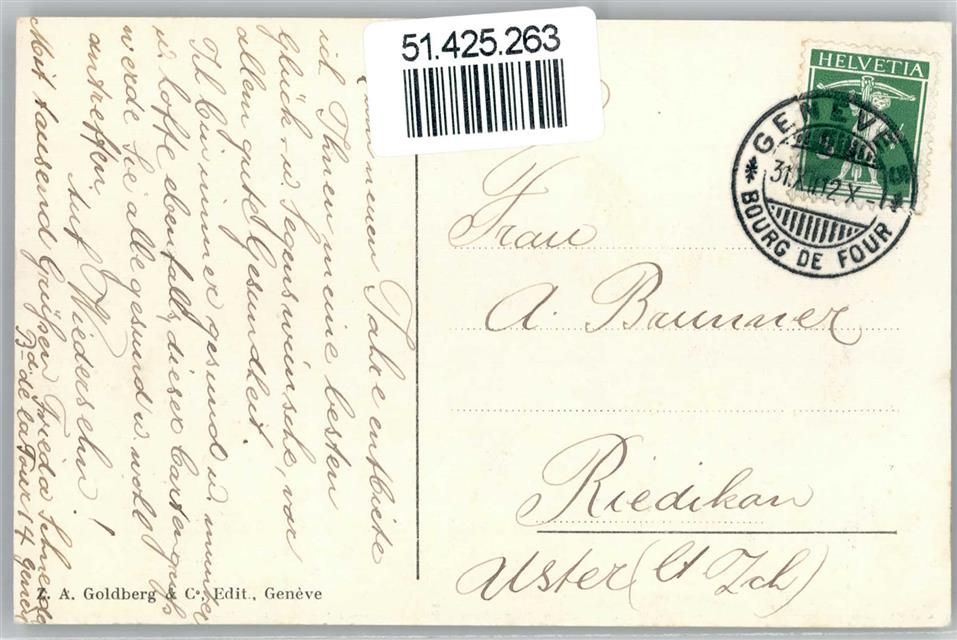 51.425.263
HELVETIA
GENÈVE
31.XII.12.X
BOURG DE FOUR
Zum neuen Jahre entbiete
ich Ihnen meine besten
Glück- u. Segenswünsche, vor
allem gute Gesundheit.
Ich bin immer gesund u. munter
u. hoffe ebenfalls, dieser Kartengruß
werde Sie alle gesund u. wohl
antreffen.
Auf Wiedersehn!
Mit tausend Grüßen Frieda
Bd. de la Tour 14 Genève
Frau
A. Brunner
Riedikon
Uster (Ct Zch)
Z. A. Goldberg & C°. Edit., Genève